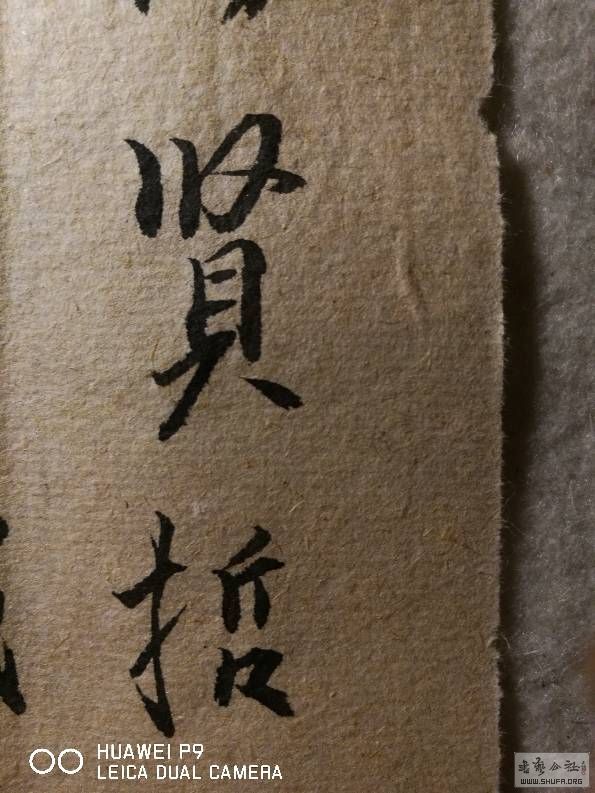 贤
哲
HUAWEI P9
LEICA DUAL CAMERA
书艺公社
WWW.SHUFA.ORG